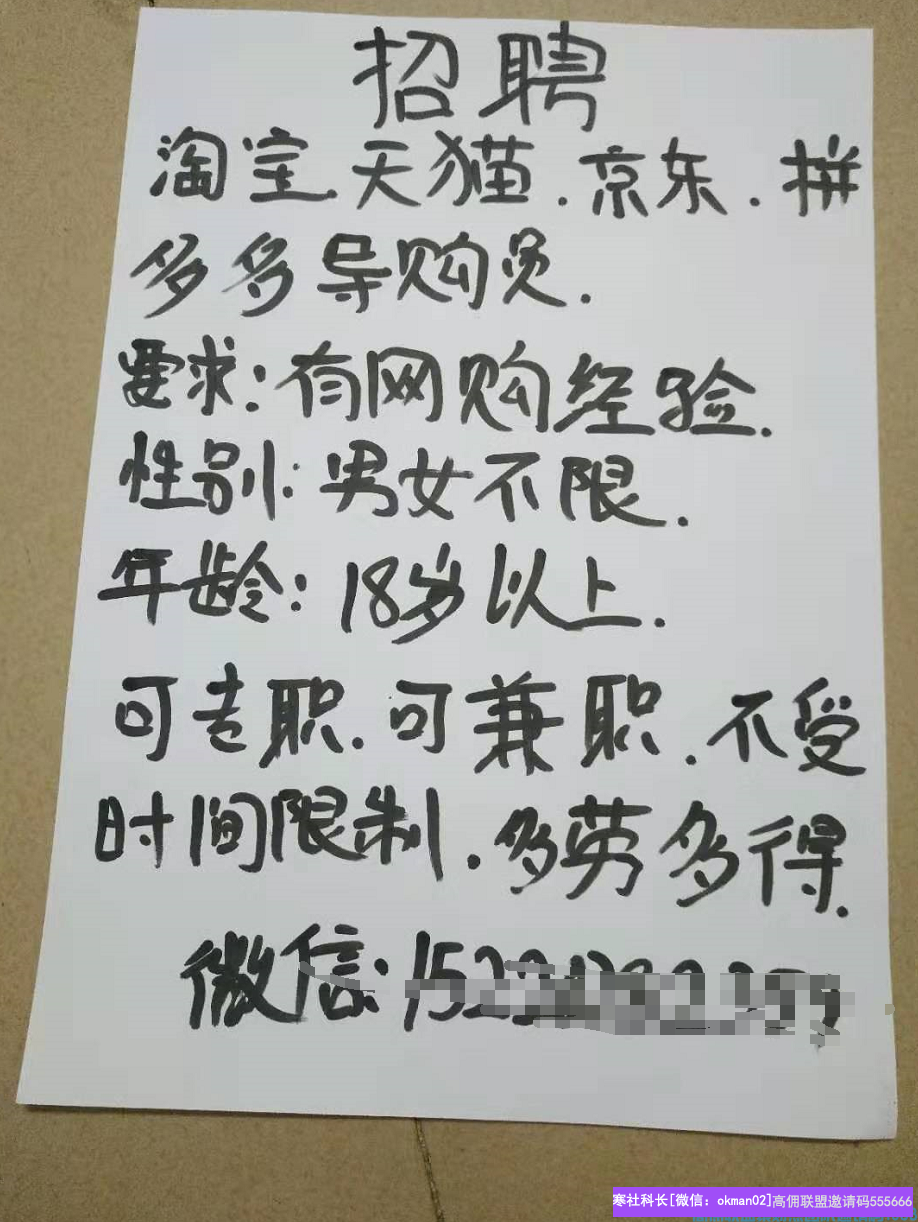 招聘
淘宝.天猫.京东.拼
多多导购员.
要求:有网购经验.
性别:男女不限.
年龄:18岁以上.
可专职.可兼职.不受
时间限制.多劳多得.
微信:152
寒社科长[微信：okman02]高佣联盟邀请码555666